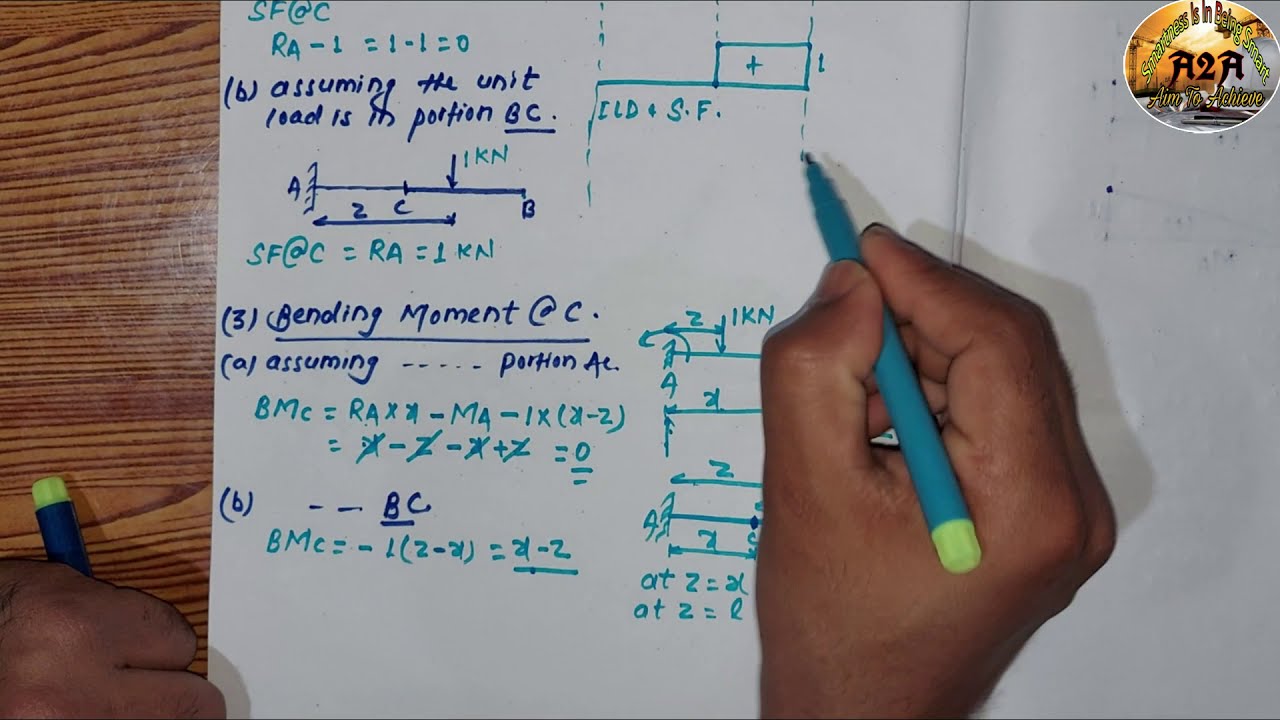 SF@C
RA - 1 = 1 - 1 = 0
(b) assuming the unit
load is in portion BC.
1 KN
A
z C
B
SF@C = RA = 1 KN
(3) Bending Moment @ C.
(a) assuming ----- portion AC.
BMc = RA × x - MA - 1 × (x - z)
= x - z - x + z = 0
(b) -- BC
BMc = - 1 (z - x) = x - z
+
1
ILD + S.F.
z 1KN
A
x
z
A
C
x
at z = x
at z = l
Smartness Is In Being Smart
A2A
Aim To Achieve